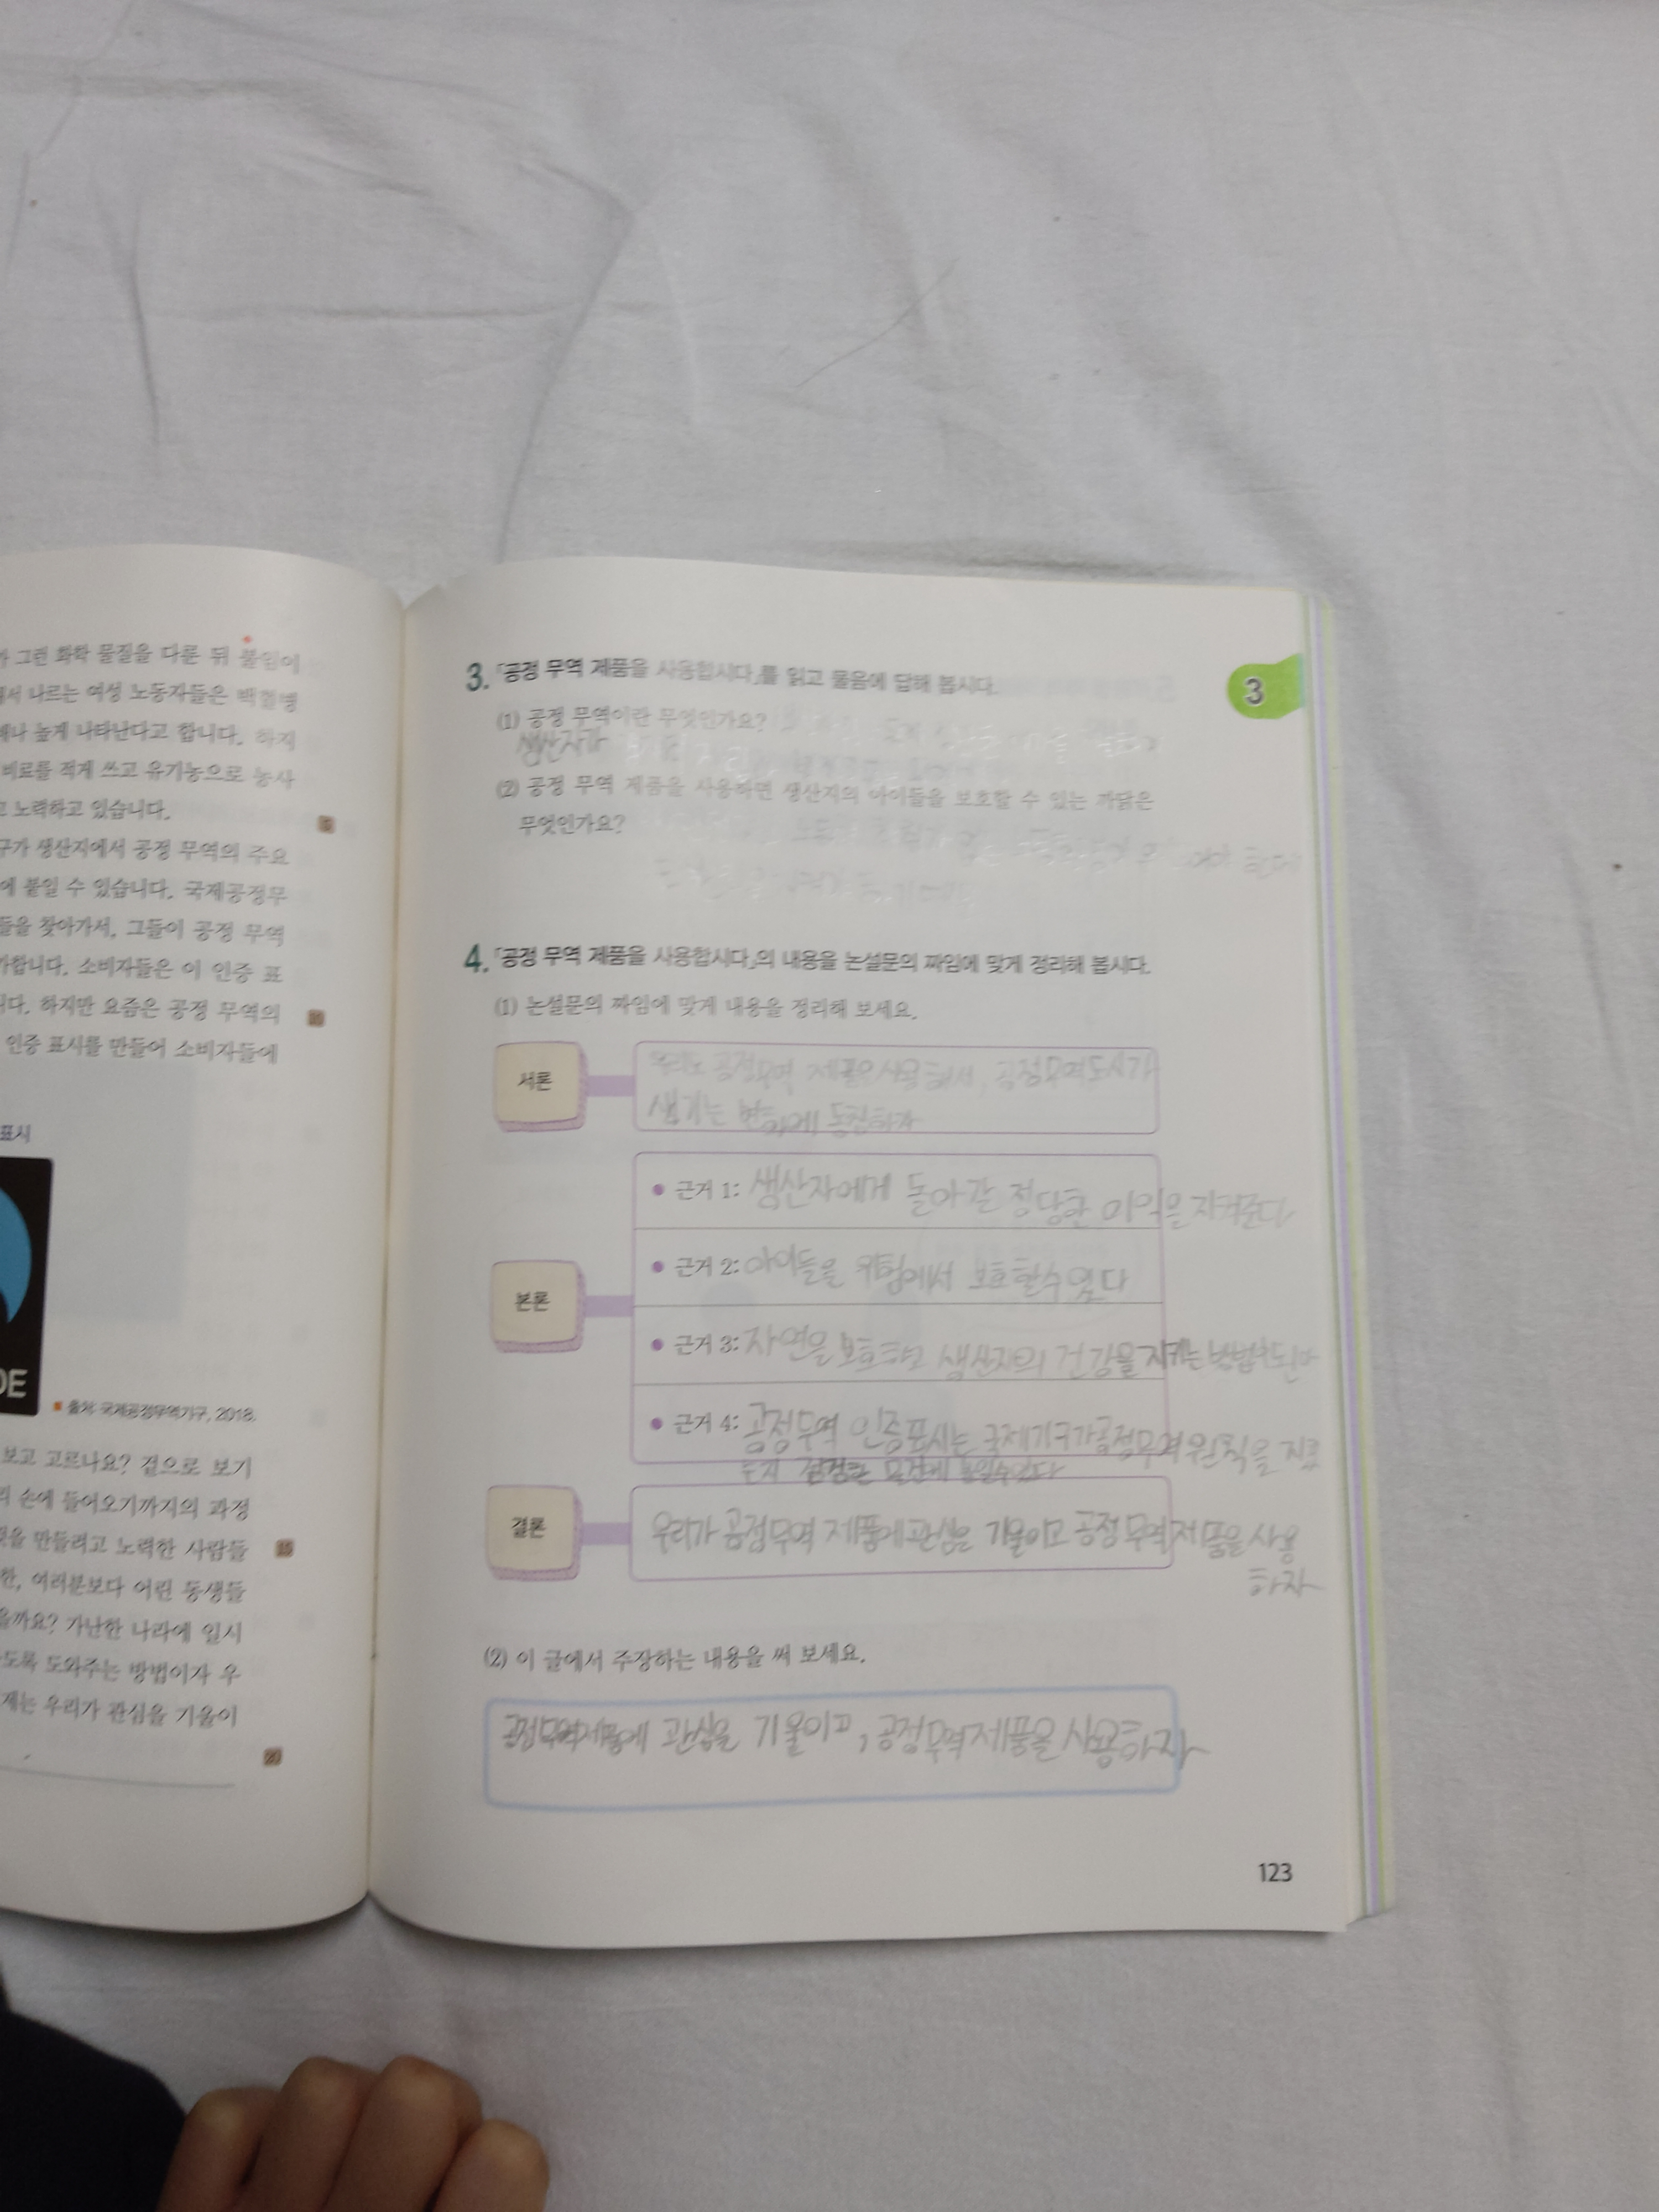 그런 화학 물질을 다룬 뒤 불임이
서 나르는 여성 노동자들은 백혈병
높게 나타난다고 합니다. 하지
비료를 적게 쓰고 유기농으로 농사
노력하고 있습니다.
구가 생산지에서 공정 무역의 주요
에 붙일 수 있습니다. 국제공정무
들을 찾아가서, 그들이 공정 무역
가합니다. 소비자들은 이 인증 표
니다. 하지만 요즘은 공정 무역의
인증 표시를 만들어 소비자들에
표시
DE
■ 출처: 국제공정무역기구, 2018.
보고 고르나요? 겉으로 보기
손에 들어오기까지의 과정
만들려고 노력한 사람들
한, 여러분보다 어린 동생들
을까요? 가난한 나라에 일시
도록 도와주는 방법이자 우
제는 우리가 관심을 기울이
20
3
3. 「공정 무역 제품을 사용합시다」를 읽고 물음에 답해 봅시다.
(1) 공정 무역이란 무엇인가요?
생산자가
(2) 공정 무역 제품을 사용하면 생산지의 아이들을 보호할 수 있는 까닭은
무엇인가요?
4. 「공정 무역 제품을 사용합시다」의 내용을 논설문의 짜임에 맞게 정리해 봅시다.
(1) 논설문의 짜임에 맞게 내용을 정리해 보세요.
서론
우리도 공정무역 제품을 사용해서, 공정무역도시가
생기는 변화에 동참하자
본론
• 근거 1: 생산자에게 돌아갈 정당한 이익을 지켜준다
• 근거 2: 아이들을 위험에서 보호할수있다
• 근거 3: 자연을 보호하고 생산자의 건강을 지키는 방법이된다
• 근거 4: 공정무역 인증표시는 국제기구가 공정무역 원칙을 지켰
는지 점검한 물건에 붙일수있다
결론
우리가 공정무역 제품에 관심을 기울이고 공정무역 제품을 사용
하자
(2) 이 글에서 주장하는 내용을 써 보세요.
공정무역제품에 관심을 기울이고, 공정무역제품을 사용하자
123